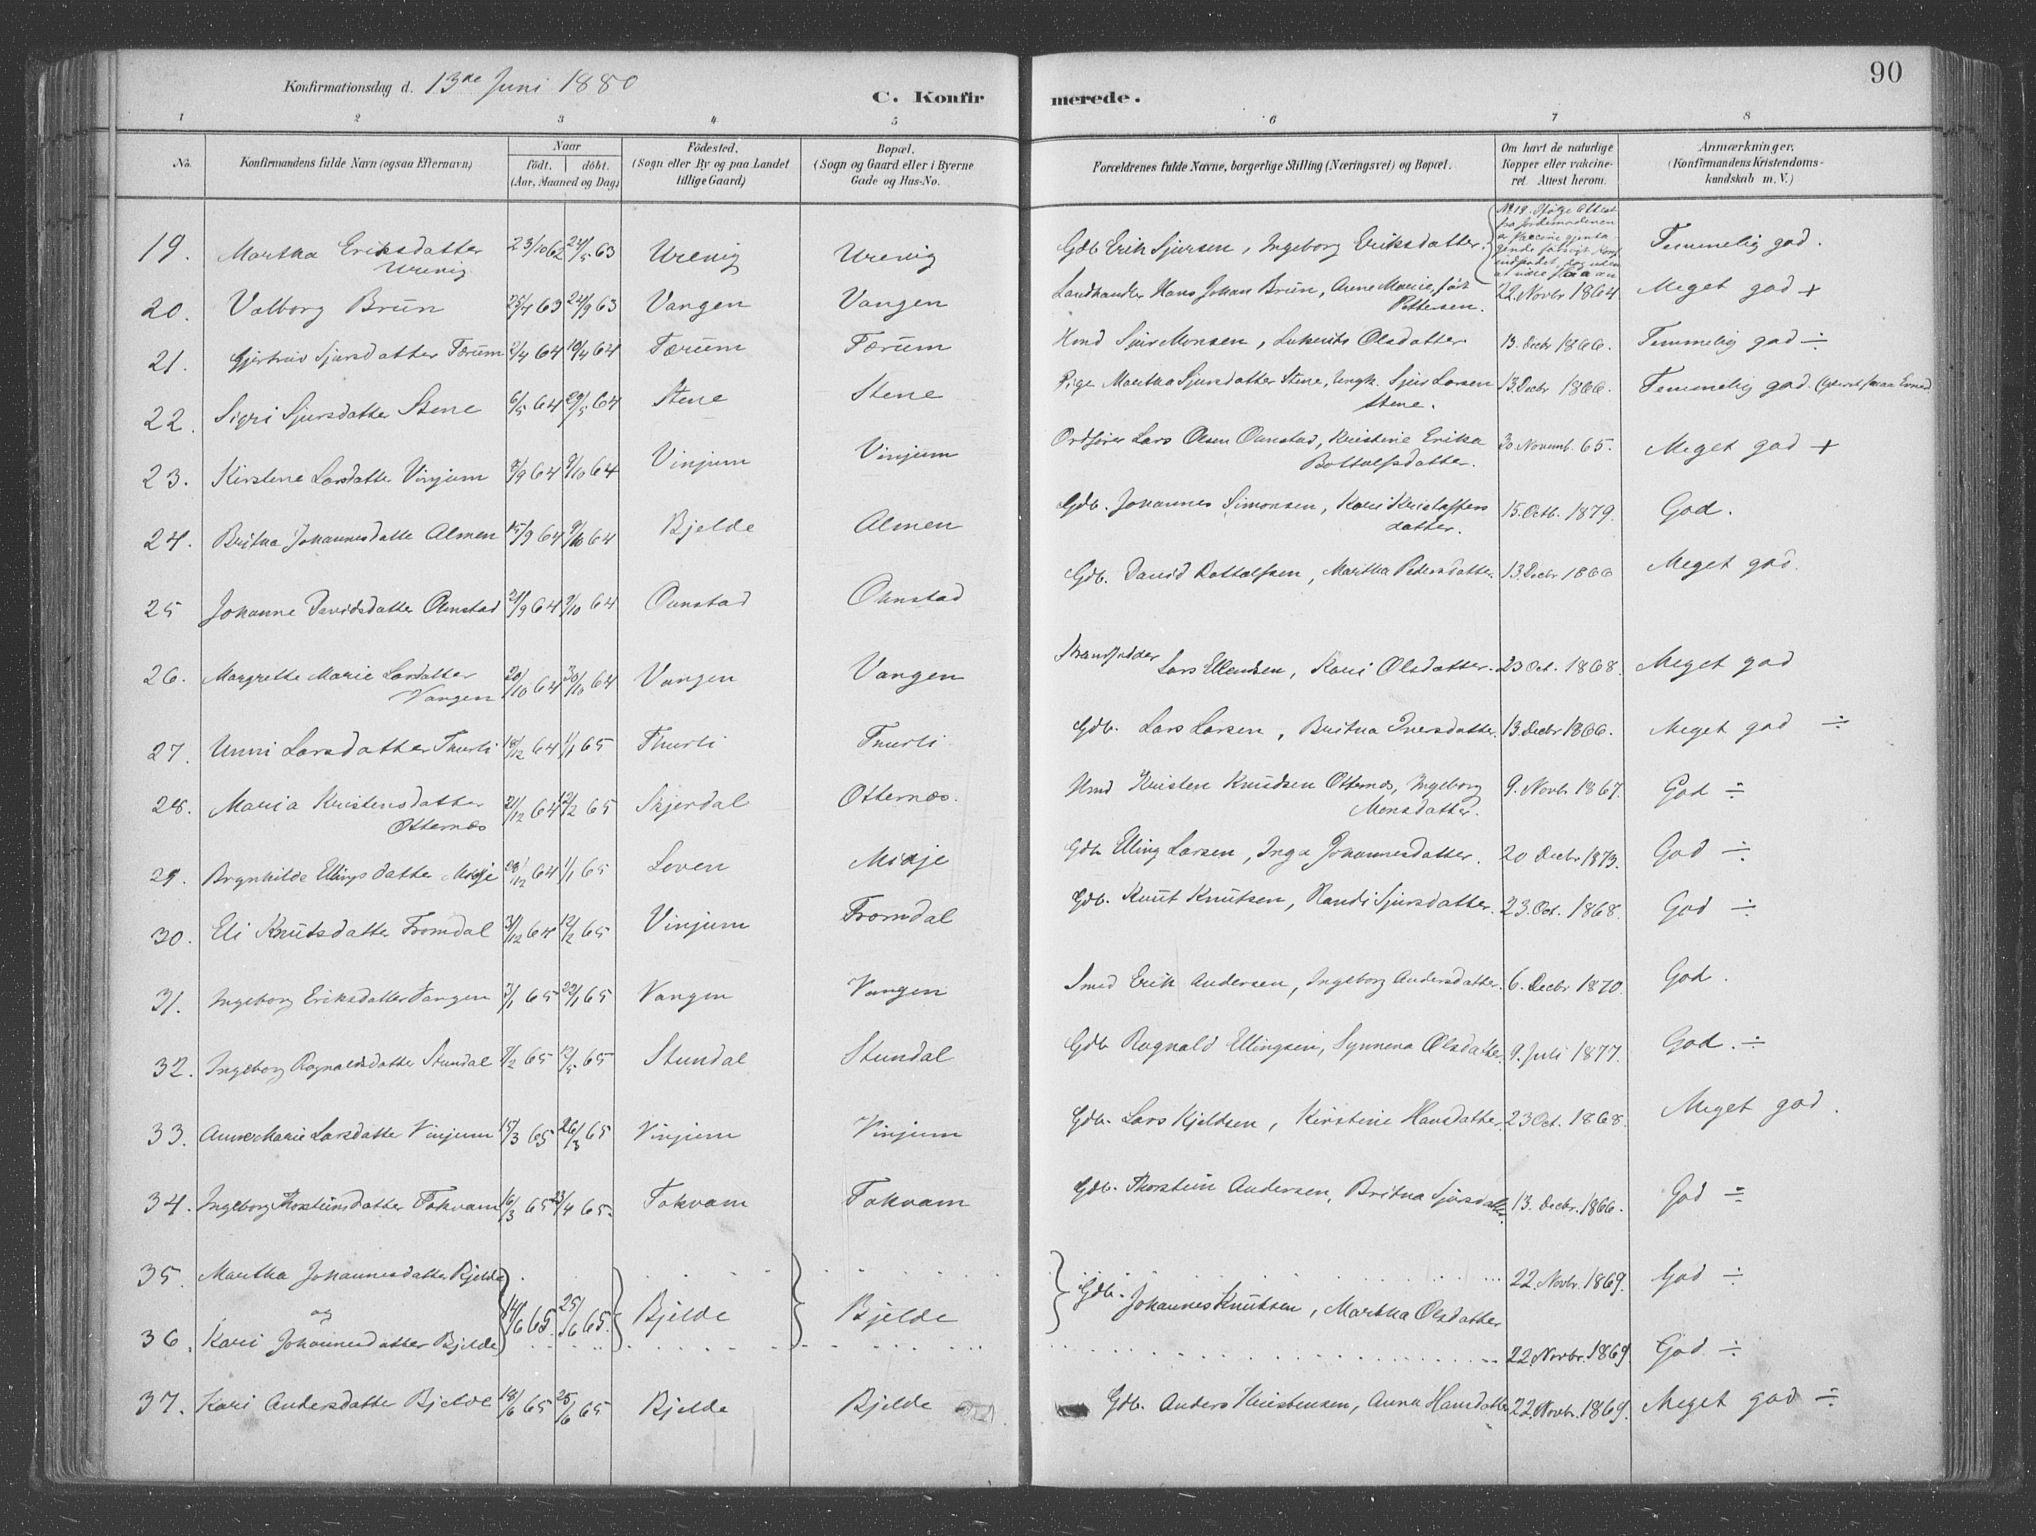 90
Konfirmationsdag d. 13de Juni 1880
C. Konfirmerede.
1 2 3 4 5 6 7 8
No. Konfirmandens fulde Navn (ogsaa Efternavn) Naar født. døbt. (Aar, Maaned og Dag) Fødested. (Sogn eller By og paa Landet tillige Gaard) Bopæl. (Sogn og Gaard eller i Byerne Gade og Hus-No. Forældrenes fulde Navne, borgerlige Stilling (Næringsvei) og Bopæl. Om havt de naturlige Kopper eller vakcineret. Attest herom. Anmærkninger. (Konfirmandens Kristendomskundskab m. V.)
19. Martha Eriksdatter Urenig 23/10 62 24/5 63 Urenig Urenig Gdb. Erik Sjursen, Ingeborg Eriksdatter. Temmelig god.
20. Valborg Brun 25/4 63 22/9 63 Vangen Vangen Landhandler Hans Johan Brun, Anne Marie, født Pettersen. 22. Novbr 1864 Meget god +
21. Gjertrud Sjursdatter Tærum 2/4 64 19/4 64 Tærum Tærum Hmd Sjur Monsen, Olsdatter 13. Decbr 1866. Temmelig god ÷
22. Sigri Sjursdatter Stene 6/5 64 29/5 64 Stene Stene Pige Martha Sjursdatter Stene, Ungk. Sjur Larsen Stene. 13. Decbr 1866. Temmelig god.
23. Kirstene Larsdatter Vinjum 8/9 64 9/10 64 Vinjum Vinjum Ordfører Lars Olsen Ohnstad, Kristine Erika Bottolfsdatter. 30. Novemb. 65. Meget god +
24. Britha Johannesdatte Almen 15/9 64 9/10 64 Bjelde Almen Gdb. Johannes Simonsen, Kari Kristoffersdatter. 15. Octb. 1879. God.
25 Johanne Davidsdatter Ohnstad 21/9 64 9/10 64 Ohnstad Ohnstad Gdb. David Bottolfsen, Martha Pedersdatter. 13. Decbr 1866 Meget god.
26. Margrethe Marie Larsdatter Vangen 20/10 64 30/10 64 Vangen Vangen Strandsidder Lars Ellendsen, Kari Olsdatter. 23 Oct. 1868. Meget god
27. Unni Larsdatter Thurli 18/12 64 1/1 65 Thurli Thurli Gdb. Lars Larsen, Britha Iversdatter. 13. Decbr 1866. Meget god ÷
28. Maria Kristensdatter Otternæs 21/12 64 12/2 65 Skjerdal Otternæs. Hmd Kristen Knudsen Otternæs, Ingeborg Monsdatter. 9. Novbr 1867. God ÷
29. Brynhilde Ellingsdatter Midje 28/12 64 1/1 65 Loven Midje Gdb Elling Larsen, Inga Johannesdatter. 20 Decbr 1873. God ÷
30. Eli Knutsdatter Fromdal 31/12 64 12/2 65 Vinjum Fromdal Gdb. Knut Knutsen, Randi Sjursdatter. 23. Oct. 1868. God ÷
31. Ingeborg Eriksdatter Vangen 3/1 65 22/1 65 Vangen Vangen Smed Erik Andersen, Ingeborg Andersdatter. 6. Decbr 1870. God.
32. Ingeborg Ragnaldsdatter Stundal 7/2 65 12/5 65 Stundal Stundal Gdb Ragnald Ellingsen, Synneva Olsdatter. 9. Juli 1877. God. ÷
33. Anne Marie Larsdatter Vinjum 15/3 65 26/3 65 Vinjum Vinjum Gdb. Lars Kjeldsen, Kirstine Hansdatter. 23 Oct. 1868. Meget god.
34. Ingeborg Thorsteinsdatter Fokvam 16/3 65 23/4 65. Fokvam Fokvam Gdb. Thorstein Andersen, Britha Sjursdatter. 13. Decbr. 1866. God ÷
35. Martha Johannesdatter Bjelde 22. Novbr. 1869. God ÷
og 14/6 65. 25/6 65. Bjelde Bjelde Gdb. Johannes Knutsen, Martha Olsdatter
36. Kari Johannesdatter Bjelde 22. Novbr. 1869. God ÷
37. Kari Andersdatter Bjelde 18/6 65 25/6 65 Bjelde Bjelde Gdb. Anders Kristensen, Anna Hansdatter 22. Novbr. 1869. Meget god ÷